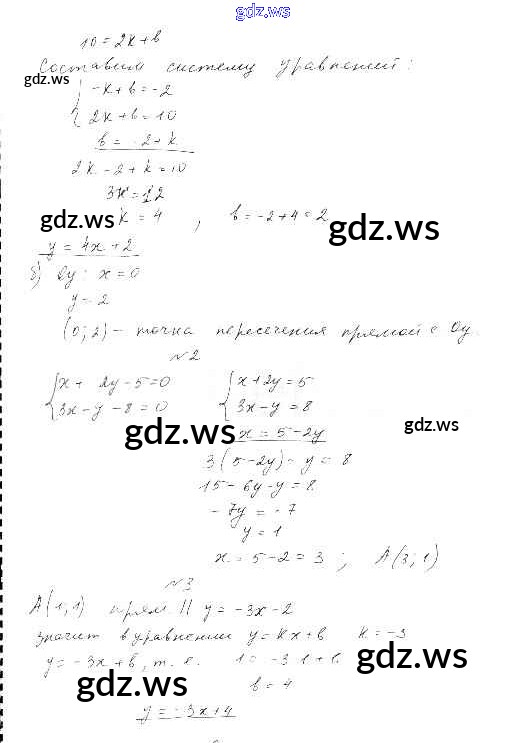 gdz.ws
10 = 2k + b
Составим систему уравнений:
gdz.ws
-k + b = -2
2k + b = 10
b = -2 + k
2k - 2 + k = 10
3k = 12
k = 4 , b = -2 + 4 = 2
gdz.ws gdz.ws
y = 4x + 2
б) Oy: x = 0
y = 2
(0; 2) - точка пересечения прямой с Oy.
№2
x + 2y - 5 = 0 x + 2y = 5
3x - y - 8 = 0 3x - y = 8
gdz.ws gdz.ws
x = 5 - 2y
3(5 - 2y) - y = 8
15 - 6y - y = 8
-7y = -7
y = 1
x = 5 - 2 = 3 ; A(3; 1)
№3
A(1; 1) прям. || y = -3x - 2
значит в уравнении y = kx + b k = -3
y = -3x + b, т. е. 1 = -3·1 + b
gdz.ws gdz.ws
b = 4
y = -3x + 4